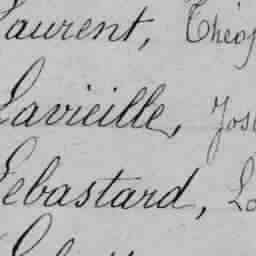 Laurent, Théop
Lavieille, Jos
Lebastard, Lo